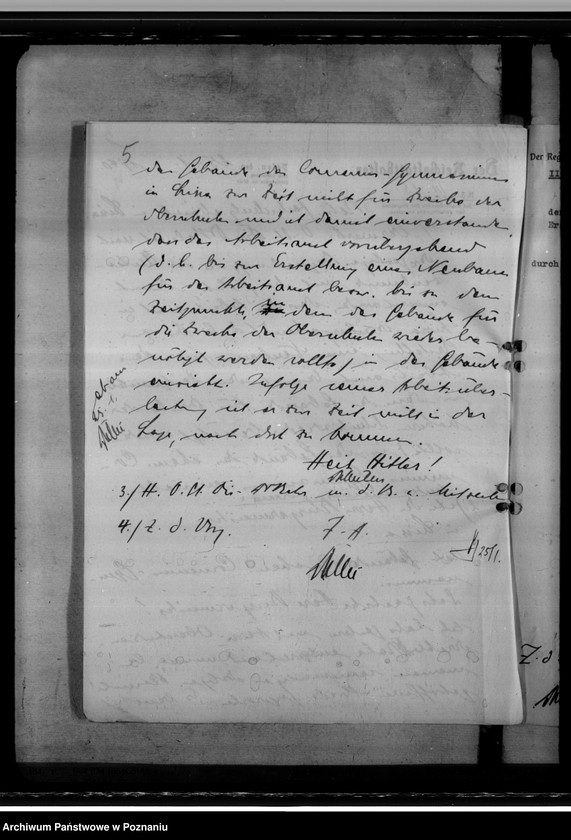 5
das Gebäude des Comenius-Gymnasiums
in Lissa zur Zeit nicht für Zwecke der
Oberschule und ist damit einverstanden,
dass das Arbeitsamt vorübergehend
(d. h. bis zur Erstellung eines Neubaues
für das Arbeitsamt bezw. bis zu dem
Zeitpunkte, zu dem das Gebäude für
die Zwecke der Oberschule wieder be-
nötigt werden sollte) in das Gebäude
einzieht. Infolge seiner Arbeitsüber-
lastung ist er zur Zeit nicht in der
Lage, nach dort zu kommen.
Heil Hitler!
3./ H. O. St. Dir. m. d. B. u. Mitzeich
4./ Z. d. Vrg.
J. A.
25/1.
Der Reg
II
de
Er
durch
Z. d
Archiwum Państwowe w Poznaniu